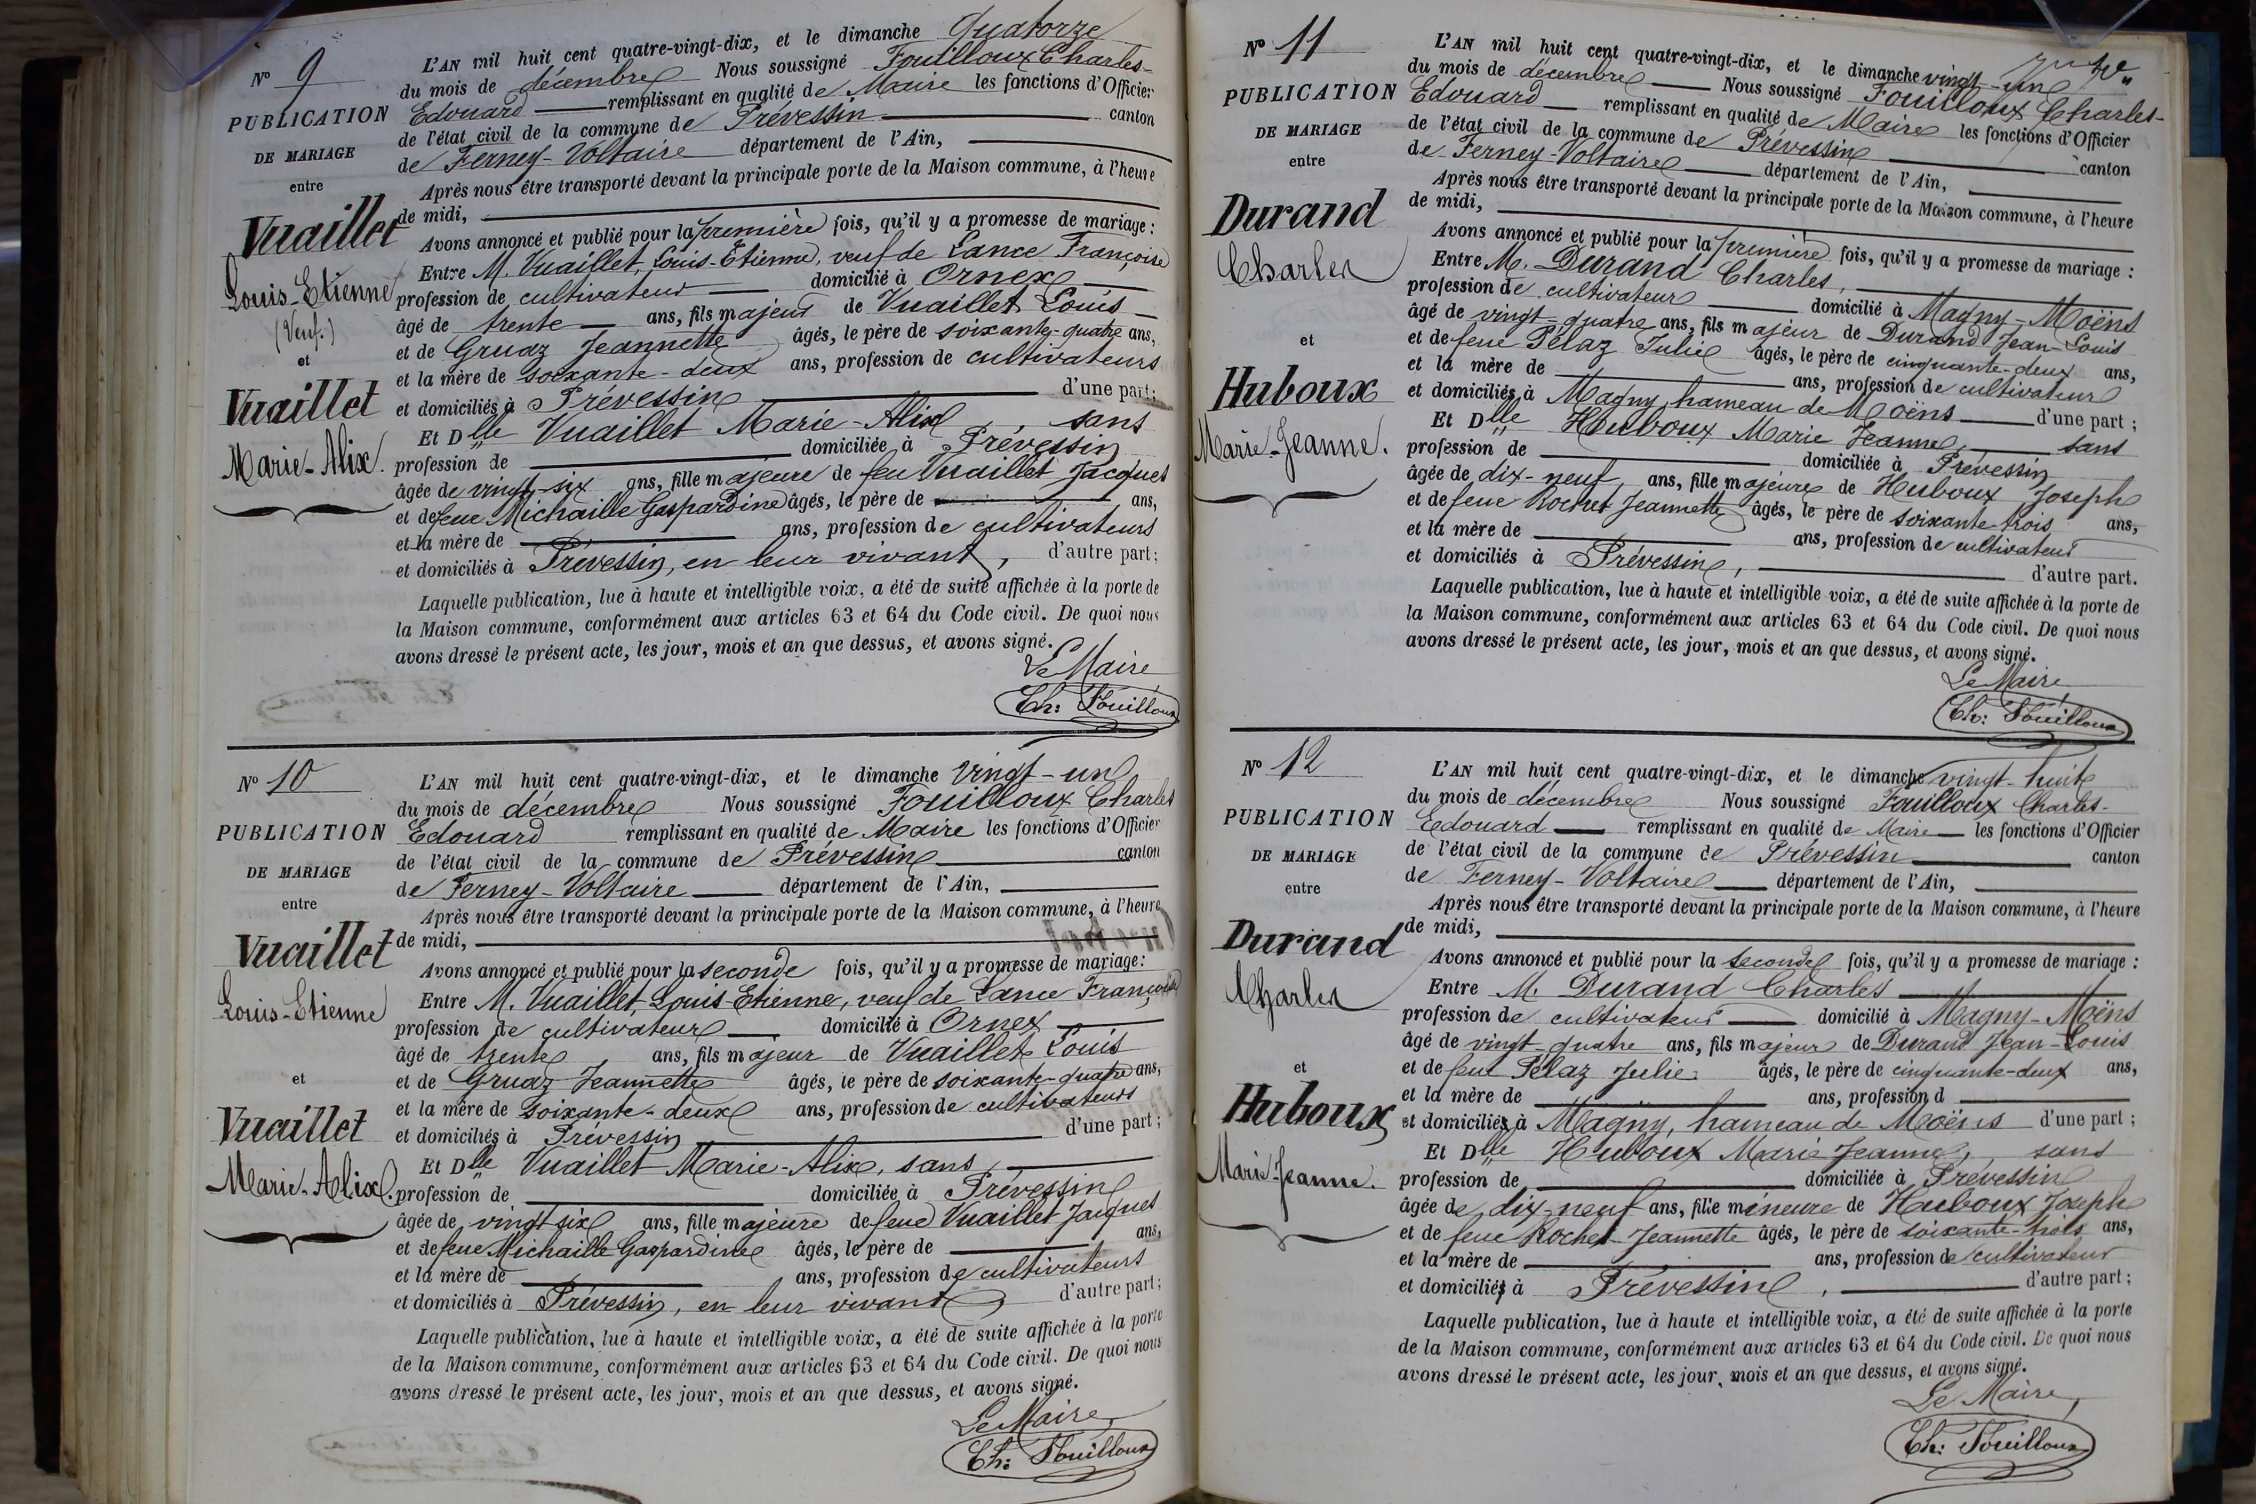 Nº 9
PUBLICATION
DE MARIAGE
entre
Vuaillet
Louis-Etienne
(Veuf.)
et
Vuaillet
Marie-Alix.
L'AN mil huit cent quatre-vingt-dix, et le dimanche quatorze
du mois de décembre Nous soussigné Fouilloux Charles-
Edouard remplissant en qualité de Maire les fonctions d'Officier
de l'état civil de la commune de Prévessin canton
de Ferney-Voltaire département de l'Ain,
Après nous être transporté devant la principale porte de la Maison commune, à l'heure
de midi,
Avons annoncé et publié pour la première fois, qu'il y a promesse de mariage :
Entre M. Vuaillet, Louis-Etienne, veuf de Lance Françoise
profession de cultivateur domicilié à Ornex
âgé de trente ans, fils majeur de Vuaillet Louis
et de Gruaz Jeannette âgés, le père de soixante-quatre ans,
et la mère de soixante-deux ans, profession de cultivateurs
et domiciliés à Prévessin d'une part;
Et Dlle Vuaillet Marie-Alix, sans
profession de domiciliée à Prévessin
âgée de vingt-six ans, fille majeure de feu Vuaillet Jacques
et de feue Michaille Gaspardine âgés, le père de ans,
et la mère de ans, profession de cultivateurs
et domiciliés à Prévessin, en leur vivant, d'autre part;
Laquelle publication, lue à haute et intelligible voix, a été de suite affichée à la porte de
la Maison commune, conformément aux articles 63 et 64 du Code civil. De quoi nous
avons dressé le présent acte, les jour, mois et an que dessus, et avons signé.
Le Maire
Ch: Fouilloux
Nº 10
PUBLICATION
DE MARIAGE
entre
Vuaillet
Louis-Etienne
et
Vuaillet
Marie-Alix.
L'AN mil huit cent quatre-vingt-dix, et le dimanche vingt-un
du mois de décembre Nous soussigné Fouilloux Charles
Edouard remplissant en qualité de Maire les fonctions d'Officier
de l'état civil de la commune de Prévessin canton
de Ferney-Voltaire département de l'Ain,
Après nous être transporté devant la principale porte de la Maison commune, à l'heure
de midi,
Avons annoncé et publié pour la seconde fois, qu'il y a promesse de mariage:
Entre M. Vuaillet, Louis-Etienne, veuf de Lance Françoise
profession de cultivateur domicilié à Ornex
âgé de trente, ans, fils majeur de Vuaillet Louis
et de Gruaz Jeannette âgés, le père de soixante-quatre ans,
et la mère de soixante-deux ans, profession de cultivateurs
et domiciliés à Prévessin d'une part;
Et Dlle Vuaillet Marie-Alix, sans,
profession de domiciliée à Prévessin
âgée de vingt-six ans, fille majeure de feue Vuaillet Jacques
et de feue Michaille Gaspardine âgés, le père de ans,
et la mère de ans, profession de cultivateurs
et domiciliés à Prévessin, en leur vivant d'autre part;
Laquelle publication, lue à haute et intelligible voix, a été de suite affichée à la porte
de la Maison commune, conformément aux articles 63 et 64 du Code civil. De quoi nous
avons dressé le présent acte, les jour, mois et an que dessus, et avons signé.
Le Maire,
Ch: Fouilloux
Nº 11
PUBLICATION
DE MARIAGE
entre
Durand
Charles
et
Huboux
Marie-Jeanne.
L'AN mil huit cent quatre-vingt-dix, et le dimanche vingt-un
du mois de décembre Nous soussigné Fouilloux Charles-
Edouard remplissant en qualité de Maire les fonctions d'Officier
de l'état civil de la commune de Prévessin canton
de Ferney-Voltaire département de l'Ain,
Après nous être transporté devant la principale porte de la Maison commune, à l'heure
de midi,
Avons annoncé et publié pour la première fois, qu'il y a promesse de mariage :
Entre M. Durand Charles,
profession de cultivateur domicilié à Magny-Moëns
âgé de vingt-quatre ans, fils majeur de Durand Jean-Louis
et de feue Pélaz Julie âgés, le père de cinquante-deux ans,
et la mère de ans, profession de cultivateur
et domiciliés à Magny, hameau de Moëns d'une part ;
Et Dlle Huboux Marie Jeanne, sans
profession de domiciliée à Prévessin
âgée de dix-neuf, ans, fille majeure de Huboux Joseph
et de feue Rochet Jeannette âgés, le père de soixante-trois ans,
et la mère de ans, profession de cultivateur
et domiciliés à Prévessin, d'autre part.
Laquelle publication, lue à haute et intelligible voix, a été de suite affichée à la porte de
la Maison commune, conformément aux articles 63 et 64 du Code civil. De quoi nous
avons dressé le présent acte, les jour, mois et an que dessus, et avons signé.
Le Maire
Ch: Fouilloux
Nº 12
PUBLICATION
DE MARIAGE
entre
Durand
Charles
et
Huboux
Marie-Jeanne.
L'AN mil huit cent quatre-vingt-dix, et le dimanche vingt-huit
du mois de décembre Nous soussigné Fouilloux Charles-
Edouard remplissant en qualité de Maire les fonctions d'Officier
de l'état civil de la commune de Prévessin canton
de Ferney-Voltaire département de l'Ain,
Après nous être transporté devant la principale porte de la Maison commune, à l'heure
de midi,
Avons annoncé et publié pour la seconde fois, qu'il y a promesse de mariage :
Entre M. Durand Charles
profession de cultivateur domicilié à Magny-Moëns
âgé de vingt-quatre ans, fils majeur de Durand Jean-Louis
et de feue Pélaz Julie âgés, le père de cinquante-deux ans,
et la mère de ans, profession d
et domiciliés à Magny, hameau de Moëns d'une part ;
Et Dlle Huboux Marie Jeanne, sans
profession de domiciliée à Prévessin
âgée de dix-neuf ans, fille mineure de Huboux Joseph
et de feue Rochet Jeannette âgés, le père de soixante-trois ans,
et la mère de ans, profession de cultivateur
et domiciliés à Prévessin, d'autre part ;
Laquelle publication, lue à haute et intelligible voix, a été de suite affichée à la porte
de la Maison commune, conformément aux articles 63 et 64 du Code civil. De quoi nous
avons dressé le présent acte, les jour, mois et an que dessus, et avons signé.
Le Maire,
Ch: Fouilloux